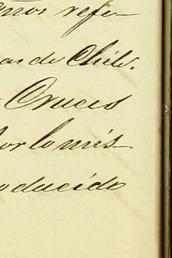 años refe-
as de Chile.
Cruces
por lo mis-
oducido